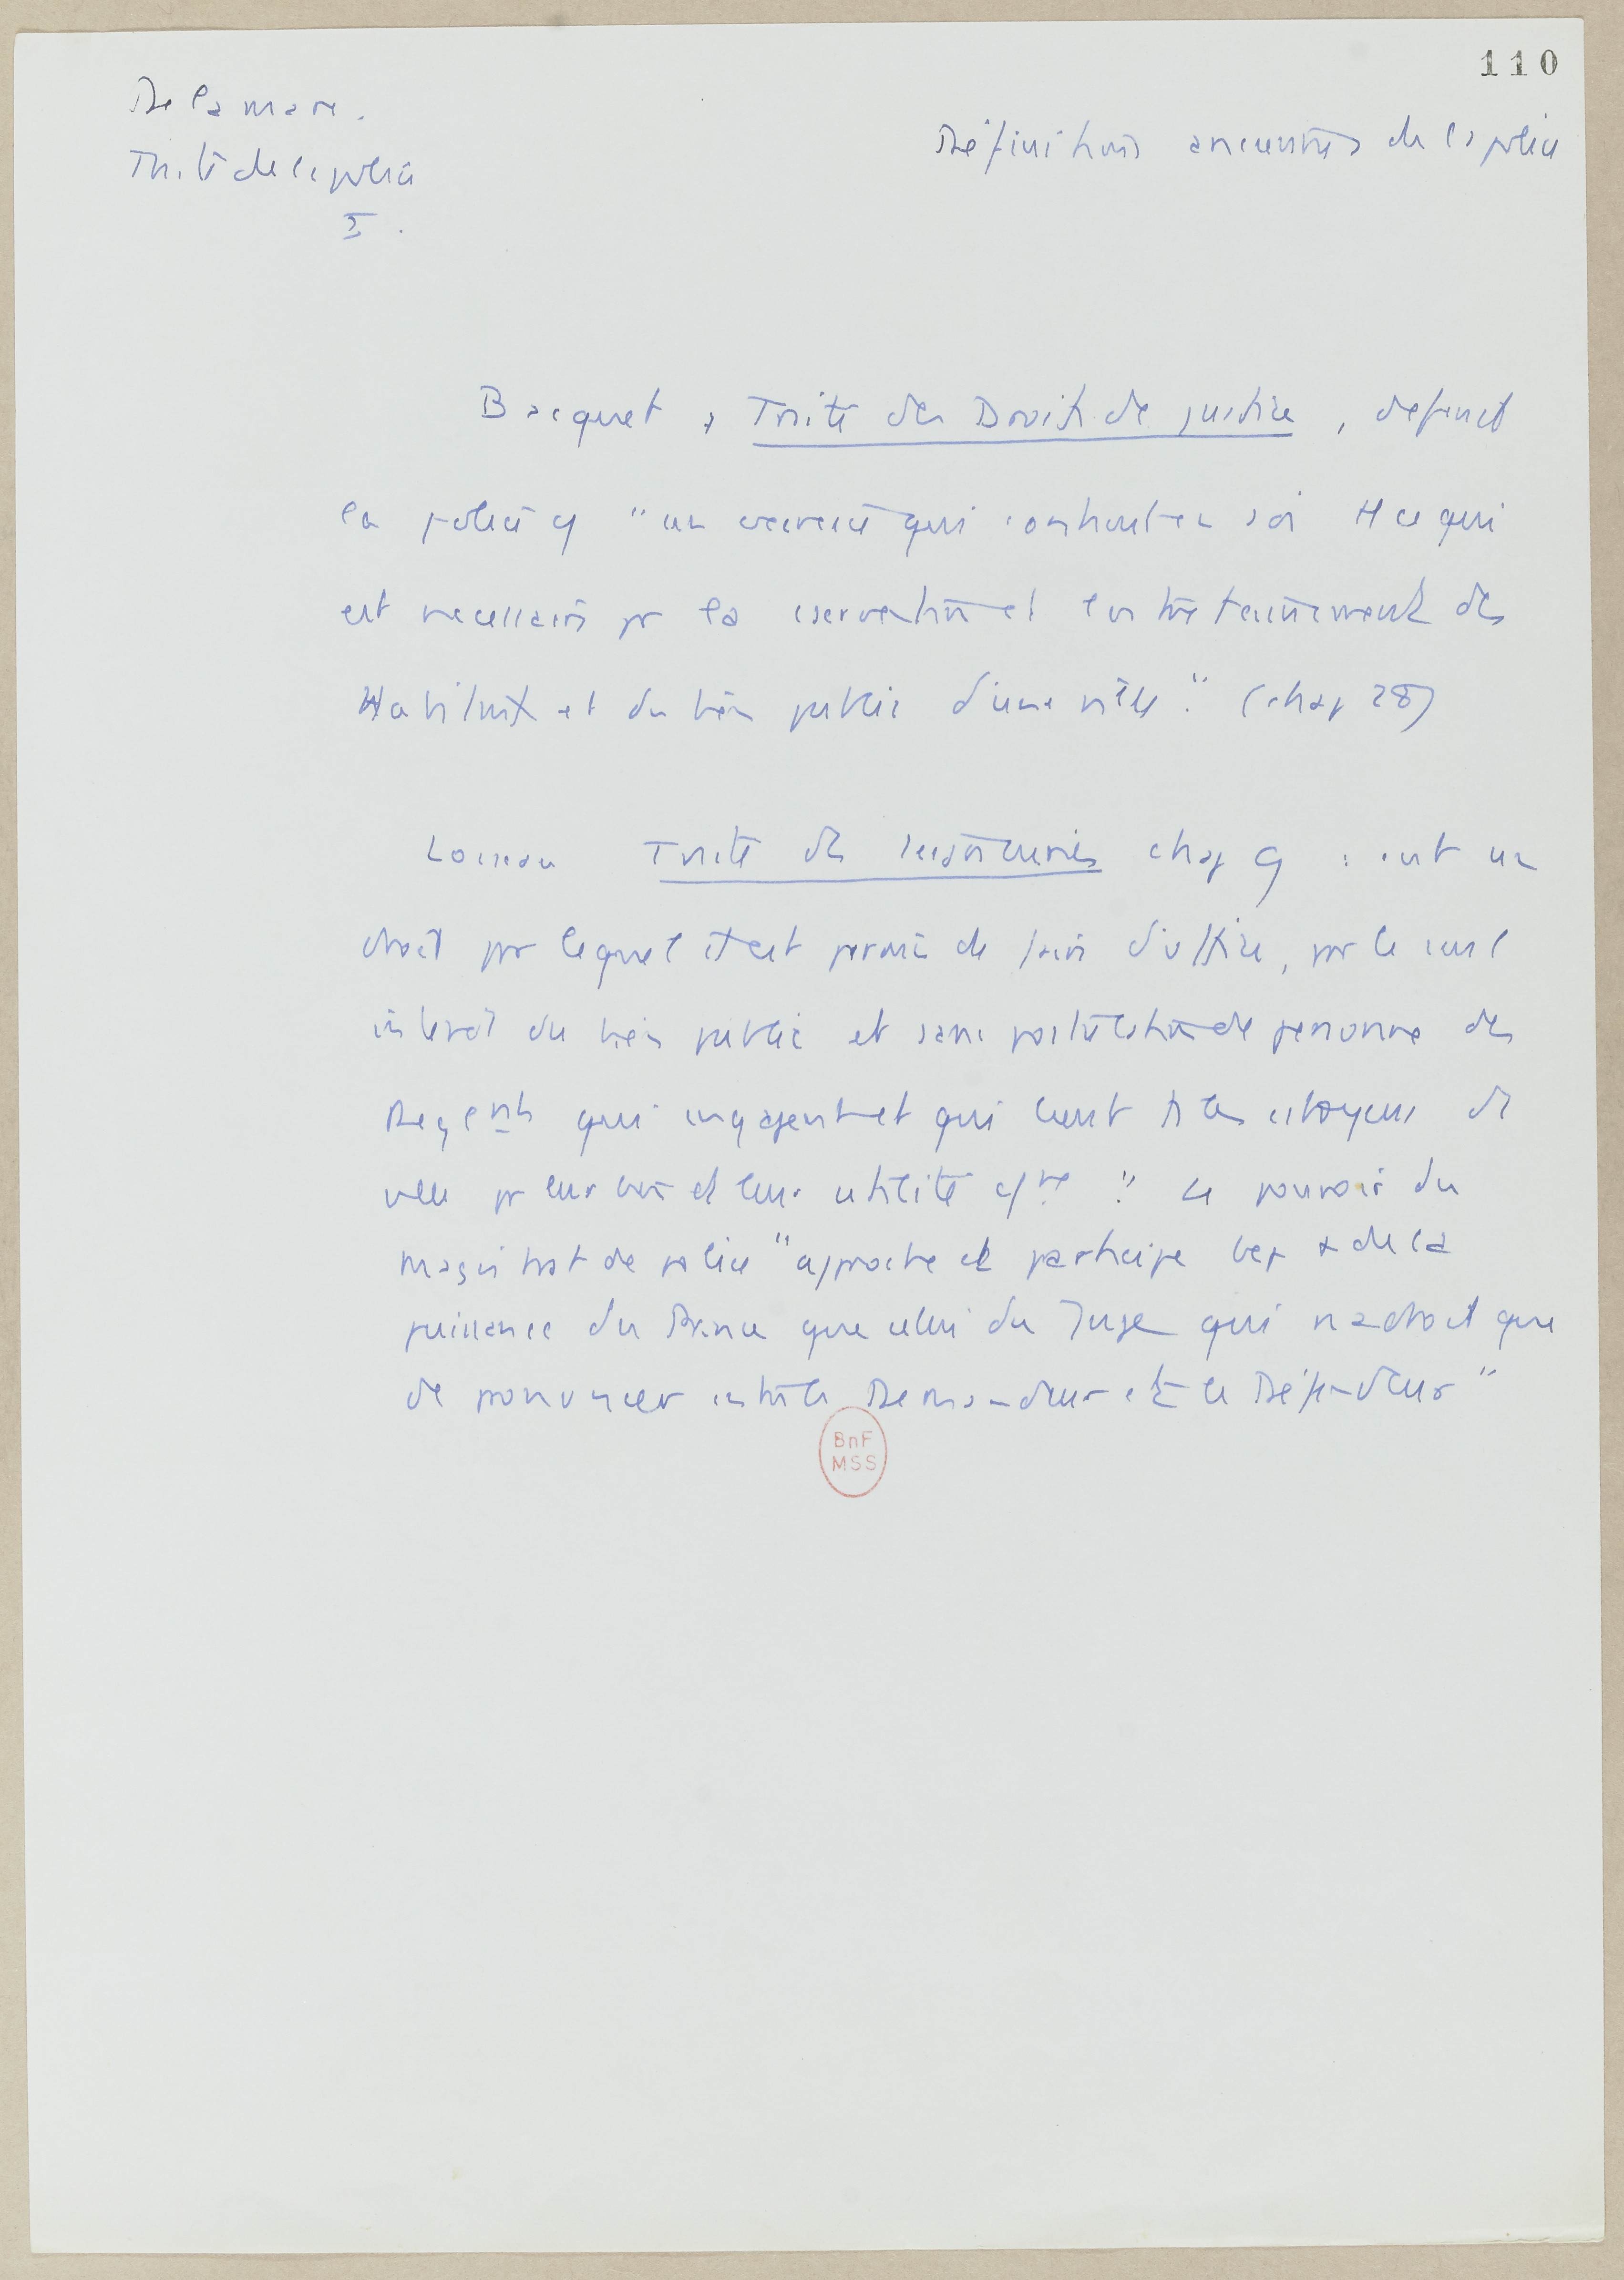 110
Delamare.
Définitions anciennes de la police
Traité de la police
I.
Bacquet, Traité des Droits de justice, definit
la police cᵉ "un exercice qui contient en soi tt ce qui
est necessaire pr la cservation et l'entretainement des
Habitants et du bien public d'une ville." (chap 28)
Loiseau Traité des seigneuries chap 9 : c'est un
droit par lequel il est permis de faire d'office, par le seul
interêt du bien public et sans postulation de personne des
Reglnts qui engagent et qui lient ts les citoyens de
ville pr leur bien et leur utilité cᵐⁿᵉ." Le pouvoir du
magistrat de police "aproche et participe bcp + de la
puissance du Prince que celui du Juge qui n'a droit que
de prononcer entre le Demandeur et le Défendeur"
BnF
MSS